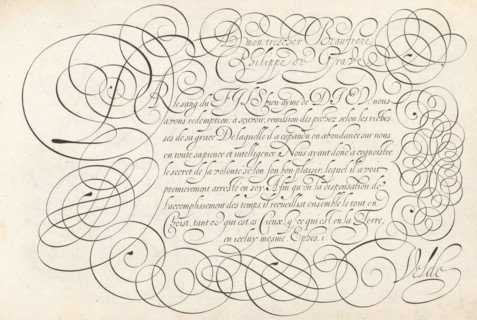 A mon trescher Beaufrere
Philippe de Grave
PAr le sang du FILS bien aymé de DIEU, nous
avons rédemption, à sçavoir, remission des pechez selon les riches-
ses de sa grace. De laquelle il a espandu en abondance sur nous
en toute sapience et intelligence. Nous ayant donné a cognoistre
le secret de sa volonté selon son bon plaisir, lequel il avoit
premierement arresté en soy. Afin qu'en la dispensation de
l'accomplissement des temps, il recueillist ensemble le tout en
Christ, tant ce qui est és Cieux, q̃ ce qui est en la Terre,
en iceluy mesme. Ephes. 1.
Velde